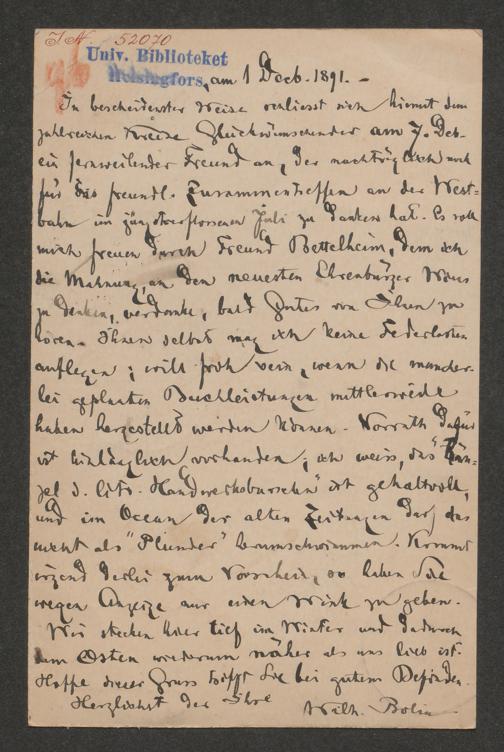 I. N. 52070
Univ. Biblioteket
Helsingfors, am 1 Decb. 1891. –
In bescheidenster Weise schliesst sich hiermit dem
zahlreichen Kreise Glückwünschender am 7. Deb.
ein fernweilender Freund an, der nachträglich noch
für das freundl. Zusammentreffen an der West-
bahn im jüngstverflossenen Juli zu danken hat. Es soll
mich freuen durch Freund Bettelheim, dem ich
die Mahnung, an den neuesten Ehrenbürger Wiens
zu denken, verdanke, bald Gutes von Ihnen zu
hören. Ihnen selbst mag ich keine Federlasten
auflegen; will froh sein, wenn die mancher-
lei geplanten Buchleistungen mittlerweile
haben hergestellt werden können. Vorrath dafür
ist hinlänglich vorhanden; ich weiss, das "Rän-
zel d. lit. Handwerksburschen" ist gehaltvoll,
und im Ocean der alten Zeitungen darf das
nicht als "Plunder" herumschwimmen. Kommt
irgend derlei zum Vorschein, so haben Sie
wegen Anzeige nur einen Wink zu geben.
Wir stecken hier tief im Winter und dadurch
dem Osten wiederum näher als uns lieb ist.
Hoffe dieser Gruss trifft Sie bei gutem Befinden.
Herzlichst der Ihre
Wilh. Bolin